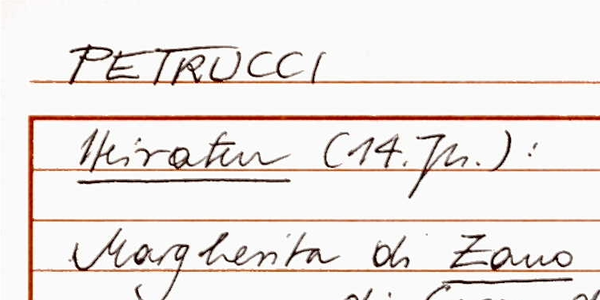 PETRUCCI
Heiraten (14. Jh.):
Margherita di Zano
di